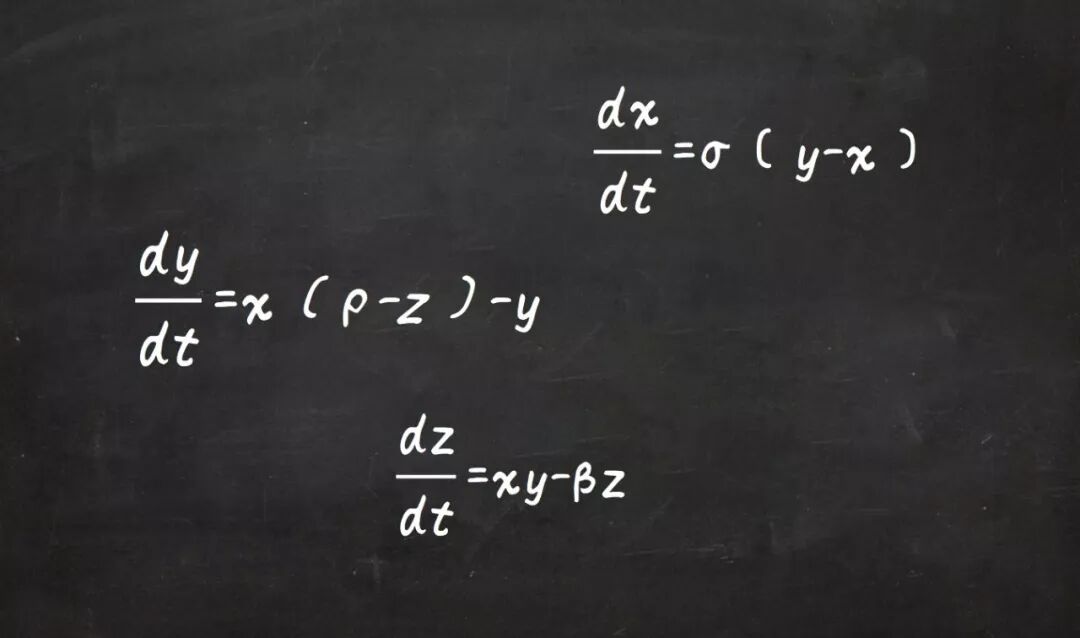 dx/dt=σ(y-x)
dy/dt=x(ρ-z)-y
dz/dt=xy-βz